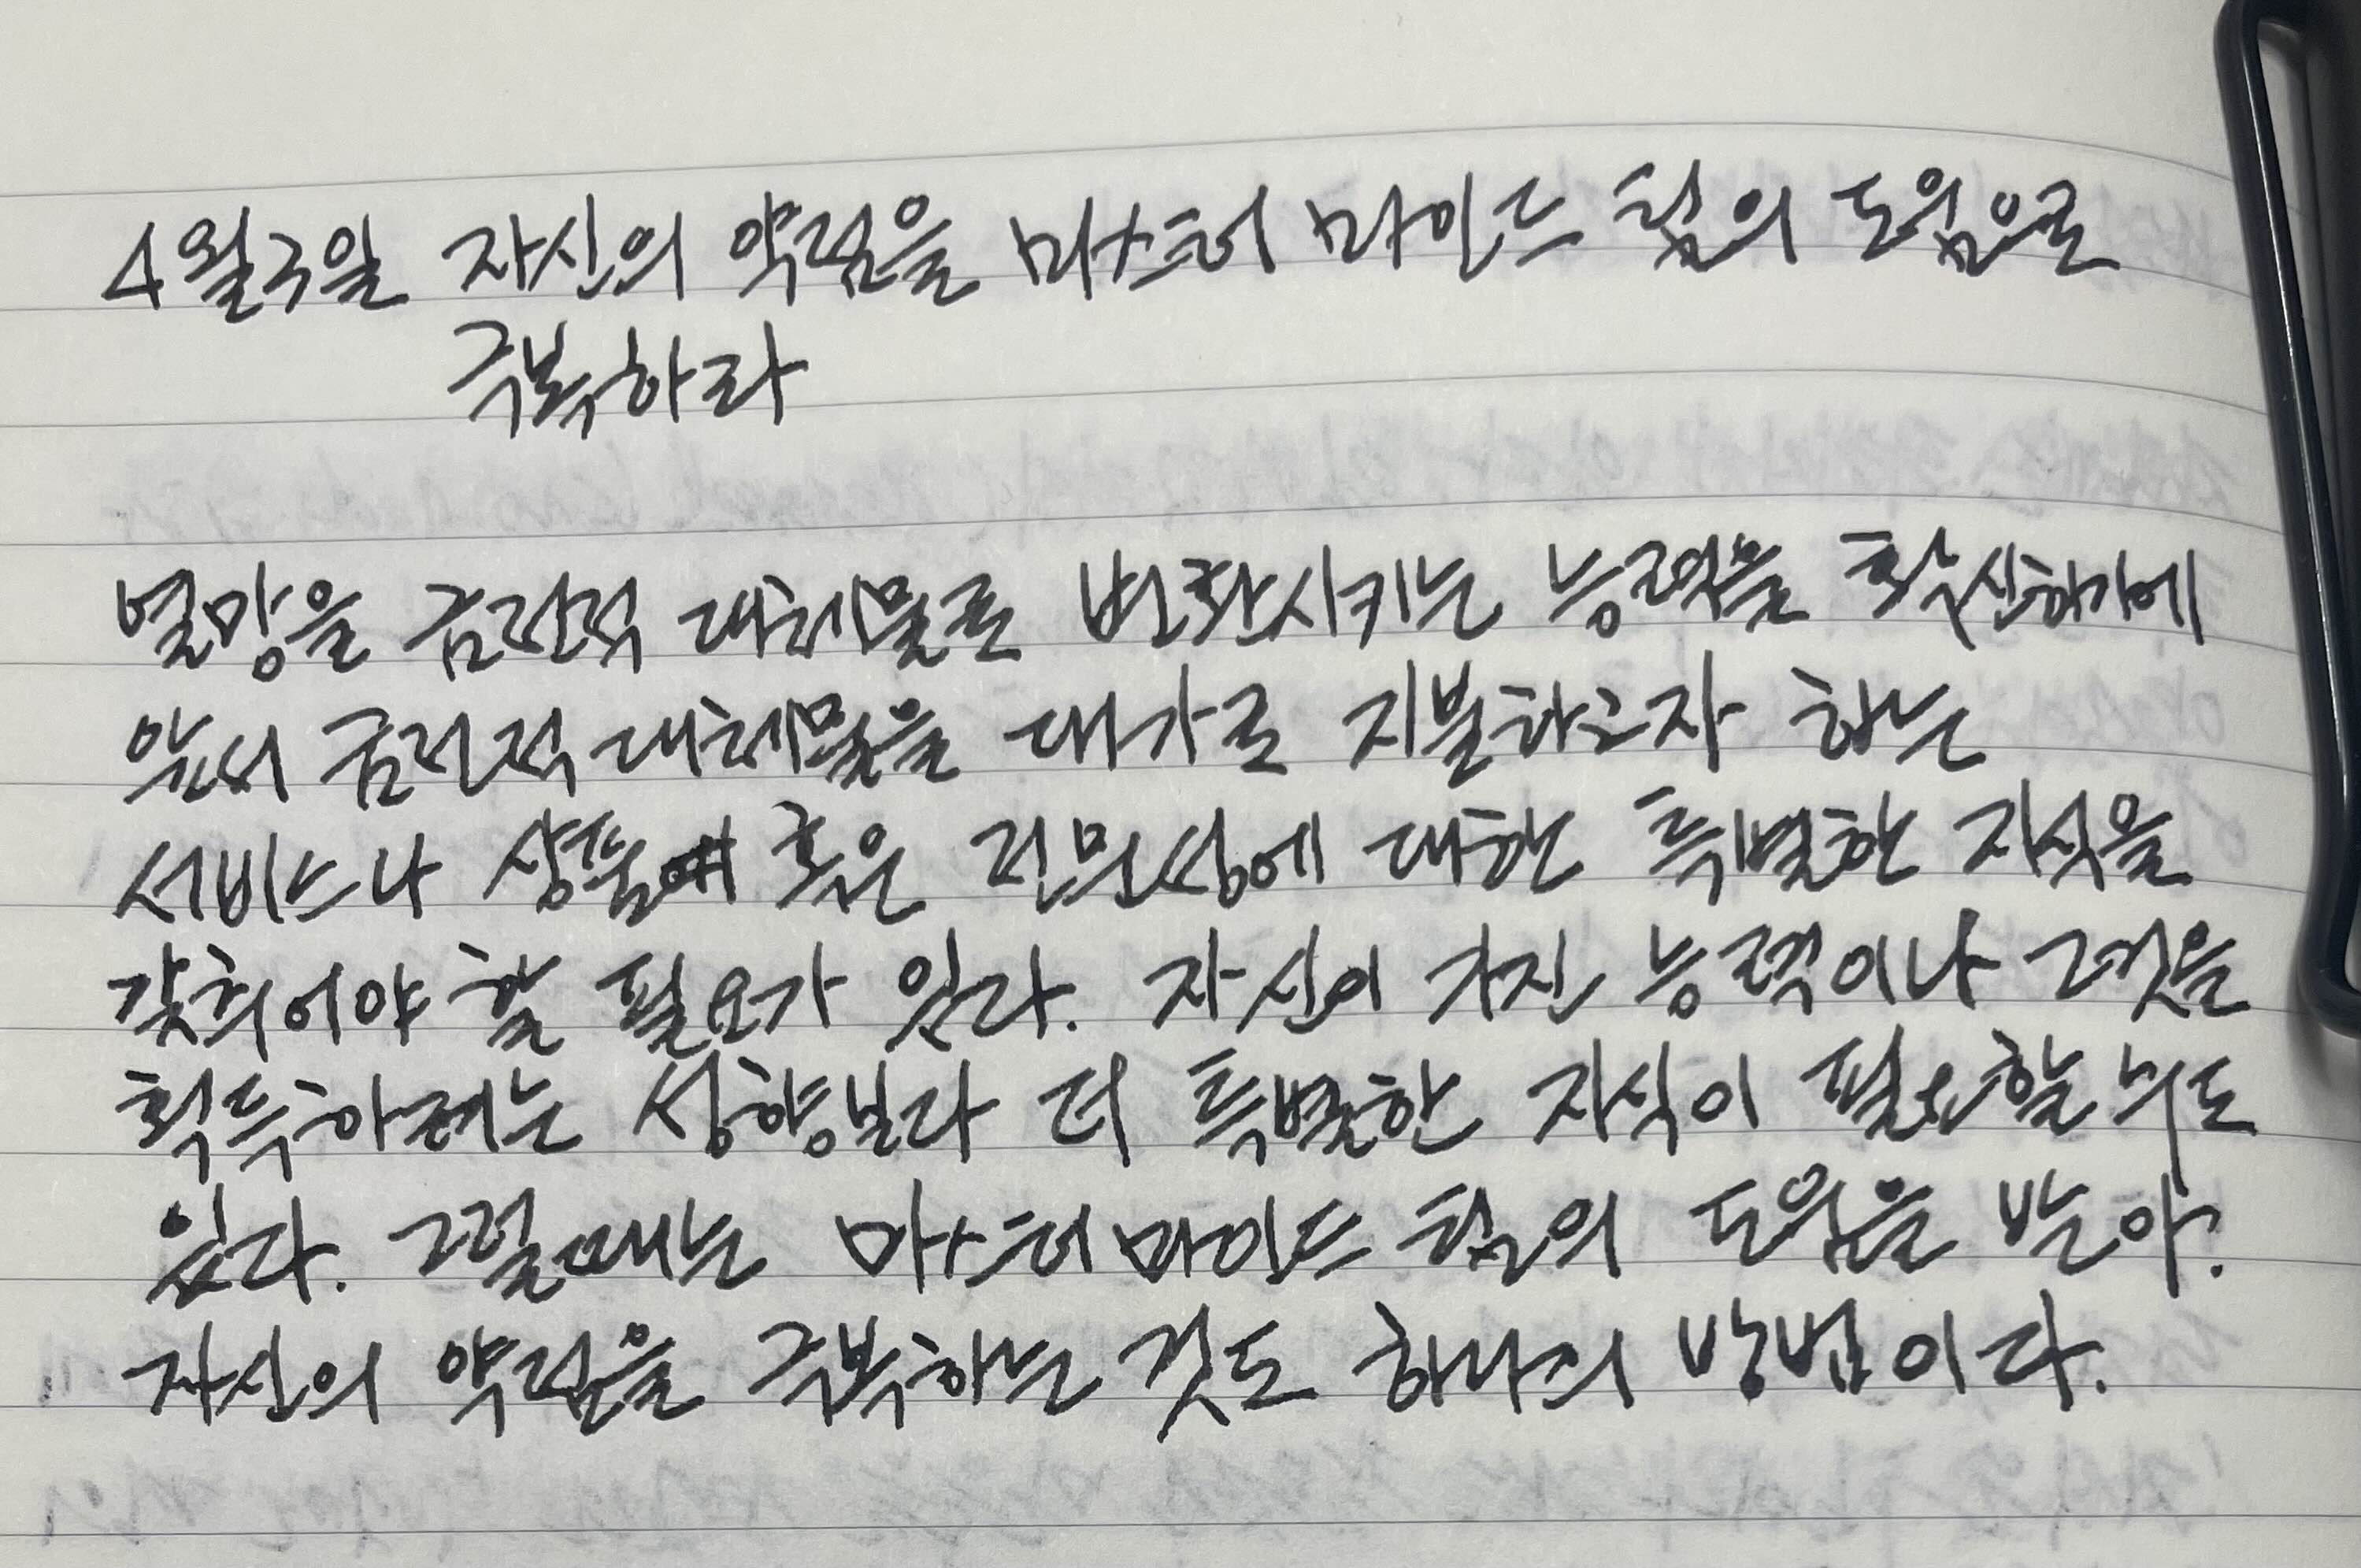 4월3일 자신의 약점을 마스터 마인드 힘의 도움으로
극복하라
열망을 금전적 대체물로 변환시키는 능력을 확신하기에
앞서 금전적 대체물을 대가로 지불하고자 하는
서비스나 상품에 혹은 전문성에 대한 특별한 지식을
갖추어야 할 필요가 있다. 자신이 가진 능력이나 그것을
획득하려는 성향보다 더 특별한 지식이 필요할 수도
있다. 그럴때는 마스터 마인드 힘의 도움을 받아.
자신의 약점을 극복하는 것도 하나의 방법이다.